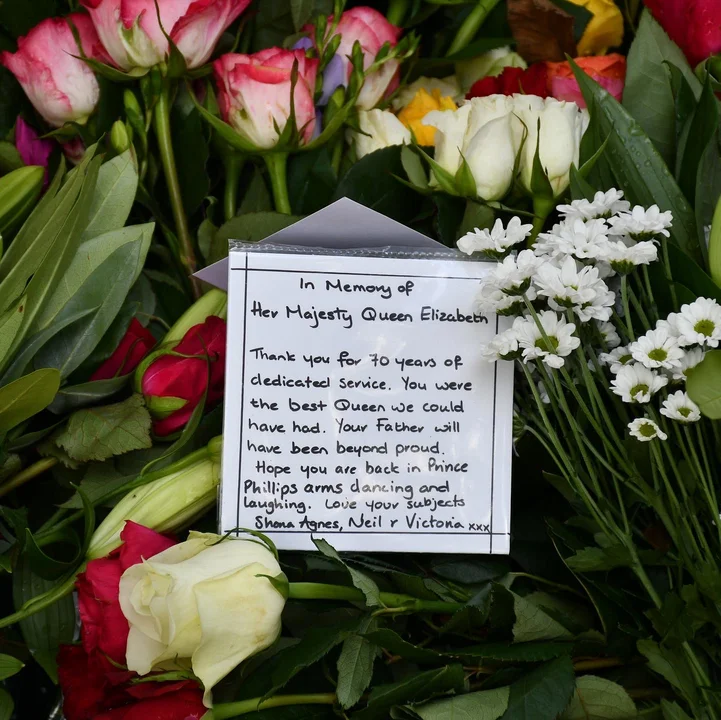 In Memory of
Her Majesty Queen Elizabeth
Thank you for 70 years of
dedicated service. You were
the best Queen we could
have had. Your Father will
have been beyond proud.
Hope you are back in Prince
Phillips arms dancing and
laughing. Love your subjects
Shona Agnes, Neil & Victoria xxx